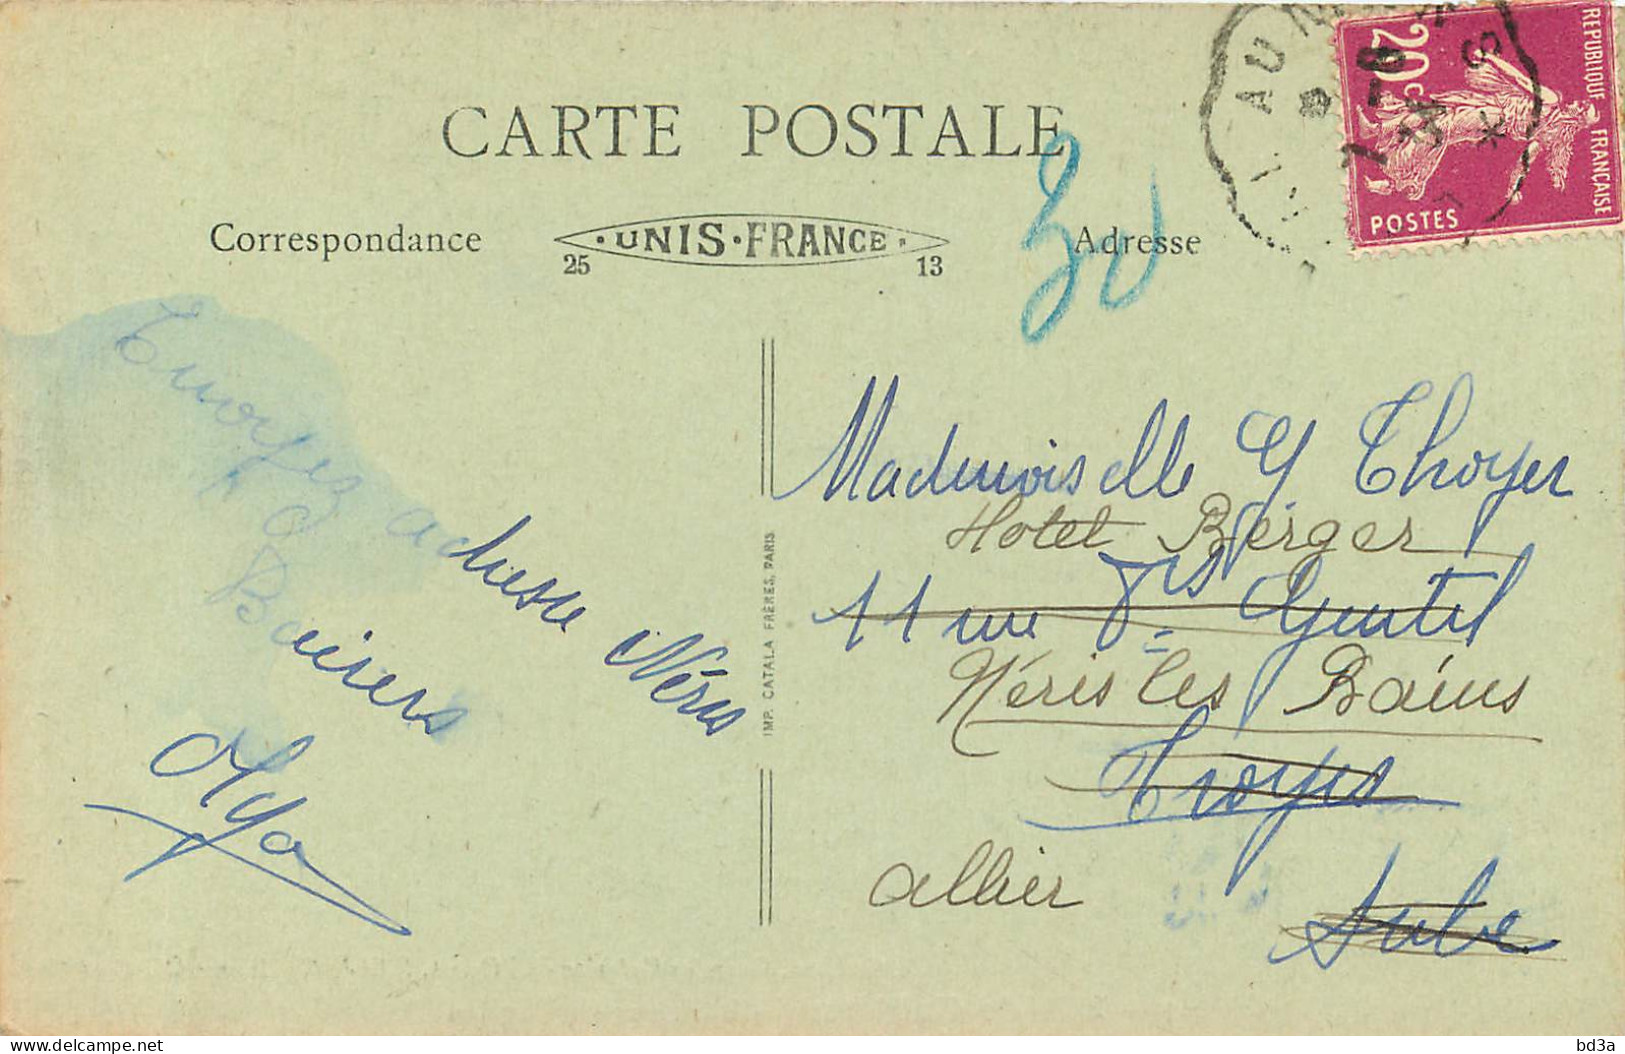 CARTE POSTALE
Correspondance
UNIS-FRANCE
25 13
Adresse
30
REPUBLIQUE FRANÇAISE
20c
POSTES
AU
7-8
34
Envoyez adresse Néris
Baisers
Olga
IMP. CATALA FRÈRES, PARIS
Mademoiselle G Thoyer
Hotel Berger
11 rue Gentil
Néris les Bains
Troyes
allier
Aube
delcampe.net
bd3a